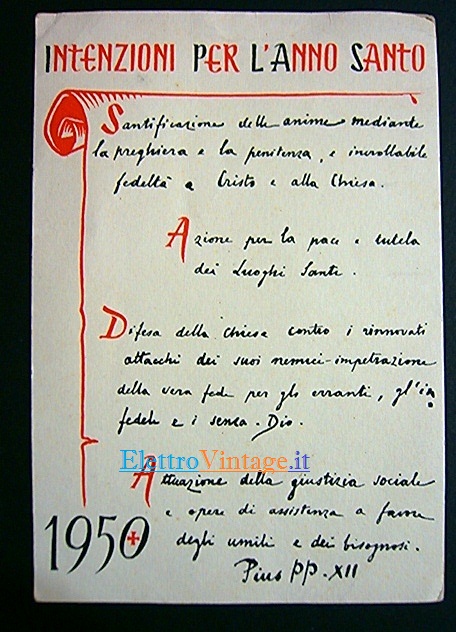 INTENZIONI PER L'ANNO SANTO
Santificazione delle anime mediante
la preghiera e la penitenza, e incrollabile
fedeltà a Cristo e alla Chiesa.
Azione per la pace e tutela
dei Luoghi Santi.
Difesa della Chiesa contro i rinnovati
attacchi dei suoi nemici-impetrazione
della vera fede per gli erranti, gl'in
fedeli e i senza-Dio.
ElettroVintage.it
Attuazione della giustizia sociale
e opere di assistenza a favore
degli umili e dei bisognosi.
1950
Pius PP. XII